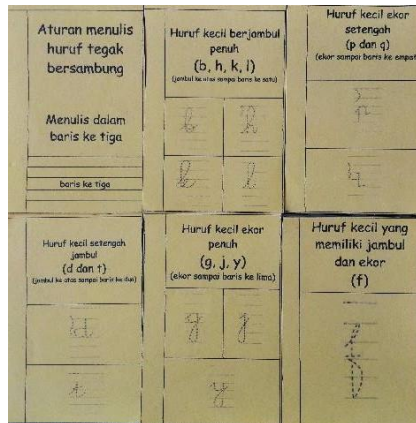 Aturan menulis
huruf tegak
bersambung
Menulis dalam
baris ke tiga
baris ke tiga
Huruf kecil berjambul
penuh
(b, h, k, l)
(jambul ke atas sampai baris ke satu)
b
h
k
l
Huruf kecil ekor
setengah
(p dan q)
(ekor sampai baris ke empat
p
q
Huruf kecil setengah
jambul
(d dan t)
(jambul ke atas sampai baris ke dua)
d
t
Huruf kecil ekor
penuh
(g, j, y)
(ekor sampai baris ke lima)
g
j
y
Huruf kecil yang
memiliki jambul
dan ekor
(f)
f